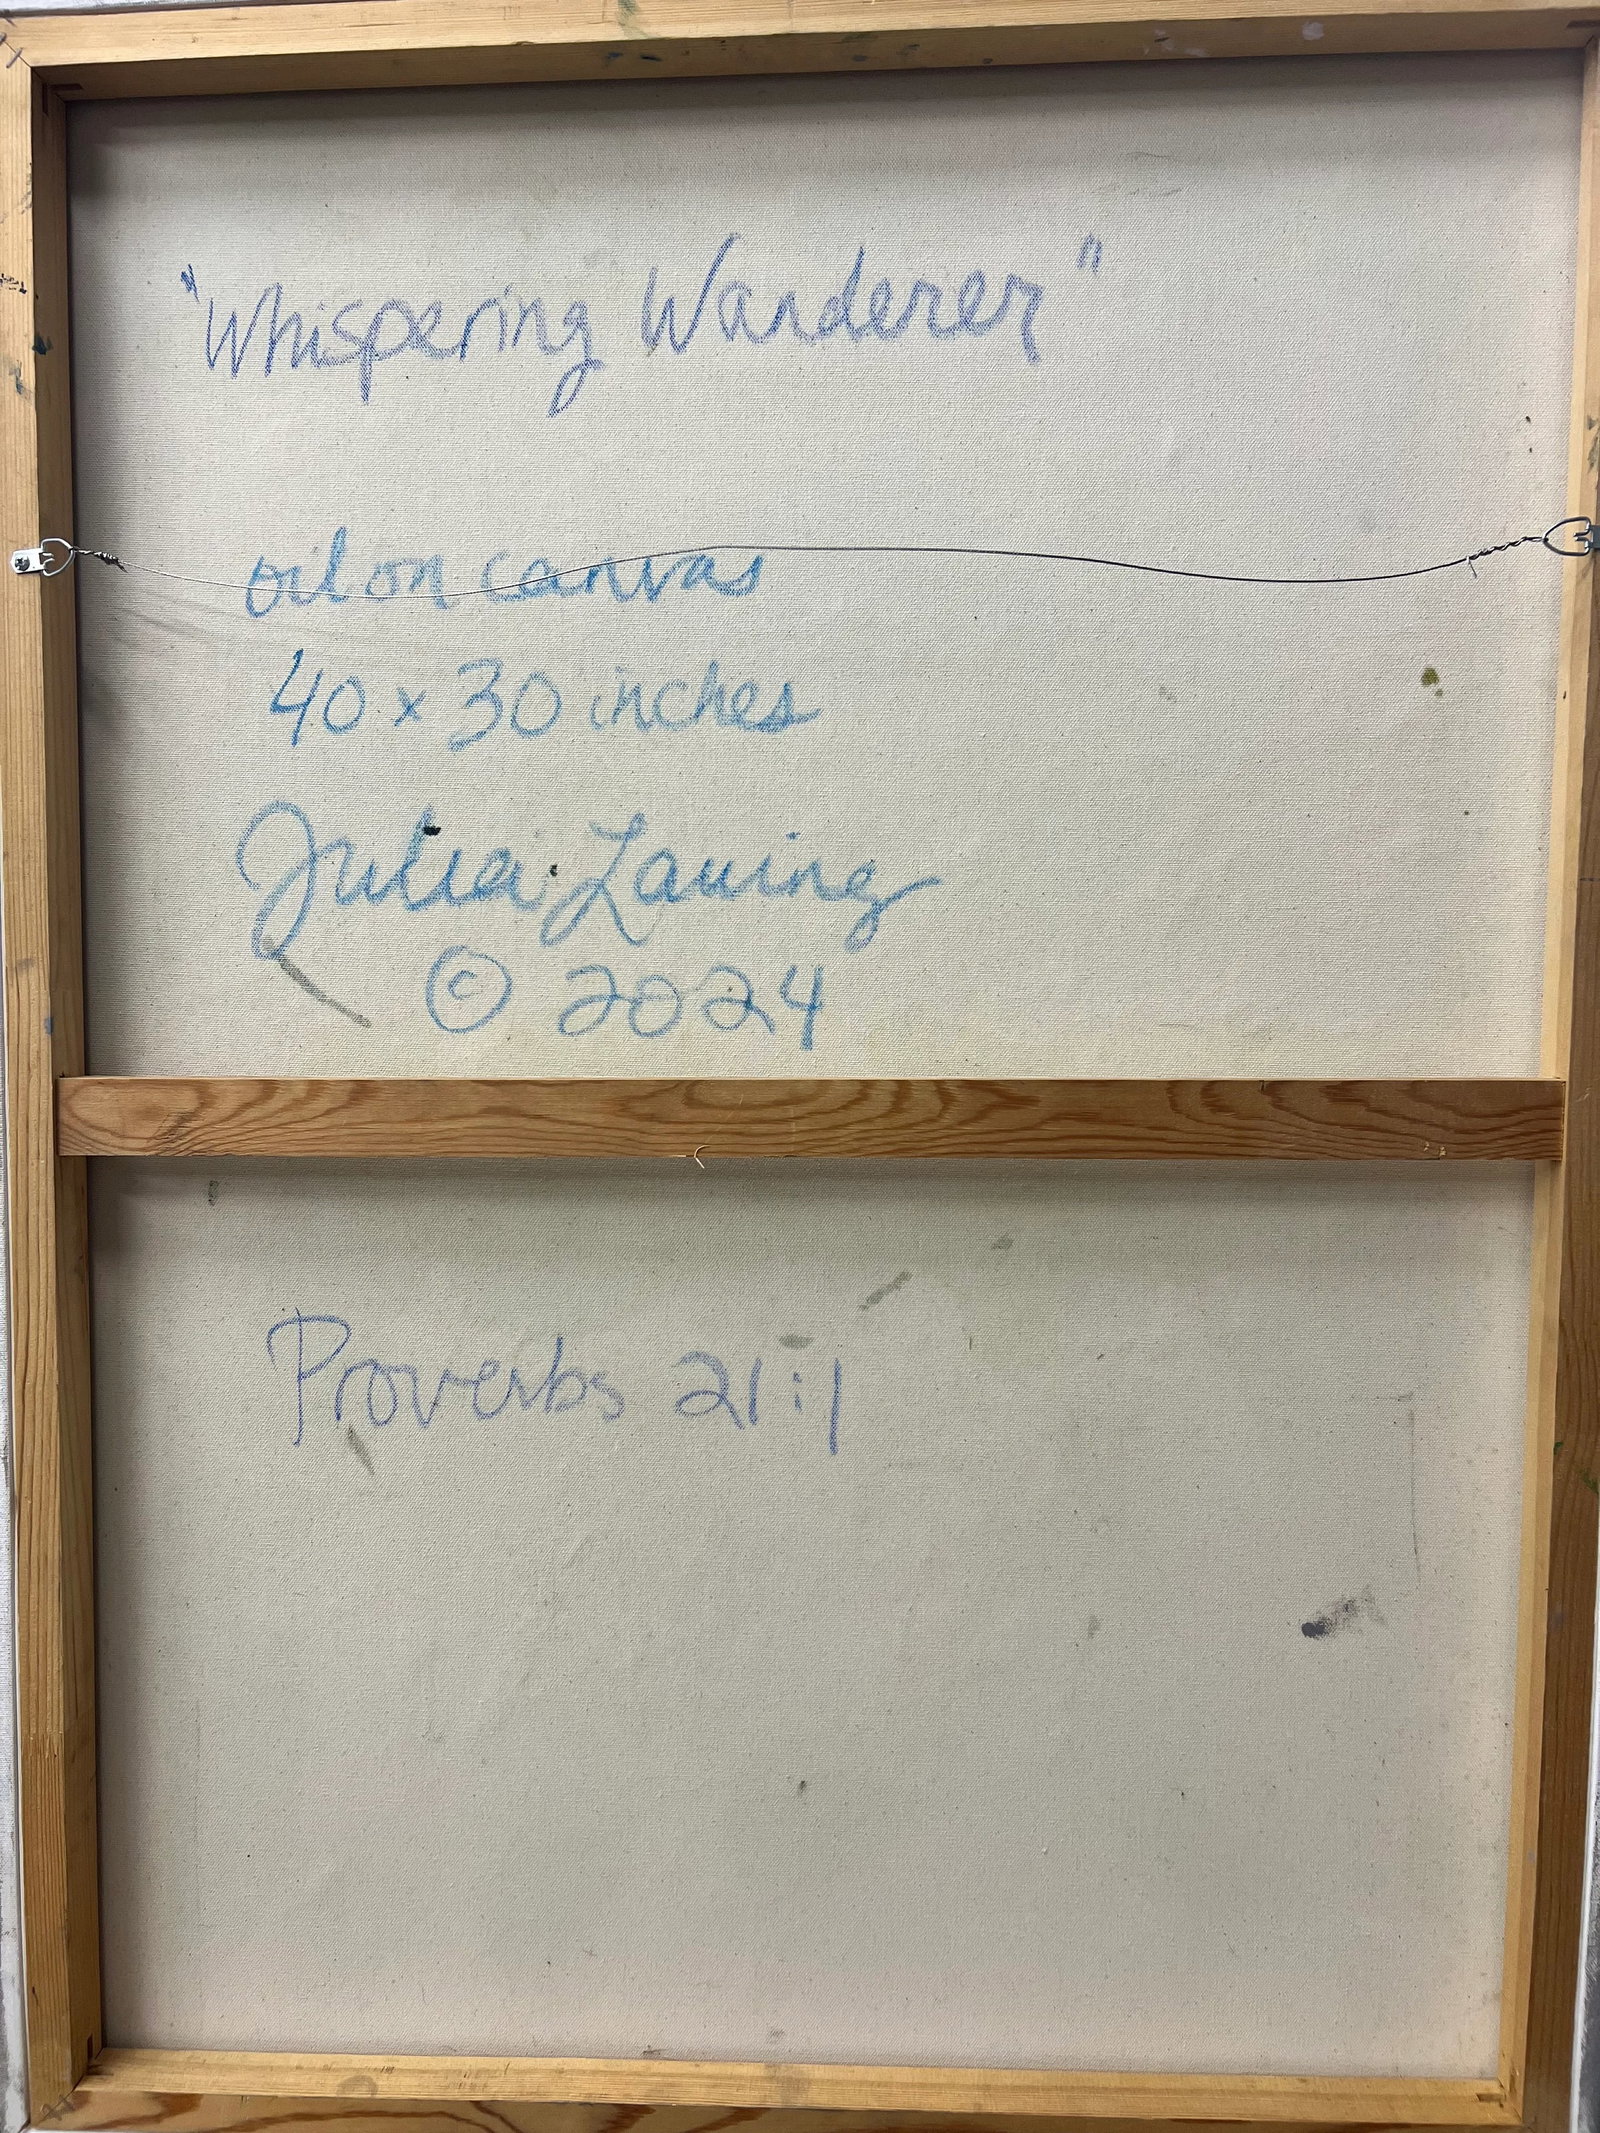 "Whispering Wanderer"
oil on canvas
40 x 30 inches
Julia Lauing
© 2024
Proverbs 21:1